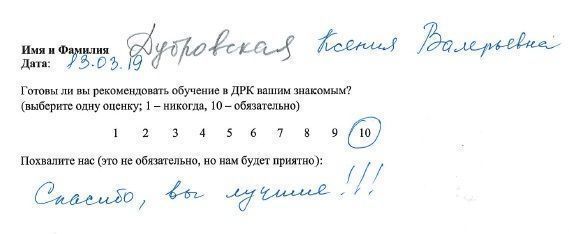 Имя и Фамилия Дубровская Ксения Валерьевна
Дата: 13.03.19
Готовы ли вы рекомендовать обучение в ДРК вашим знакомым?
(выберите одну оценку; 1 – никогда, 10 – обязательно)
1 2 3 4 5 6 7 8 9 10
Похвалите нас (это не обязательно, но нам будет приятно):
Спасибо, вы лучшие!!!